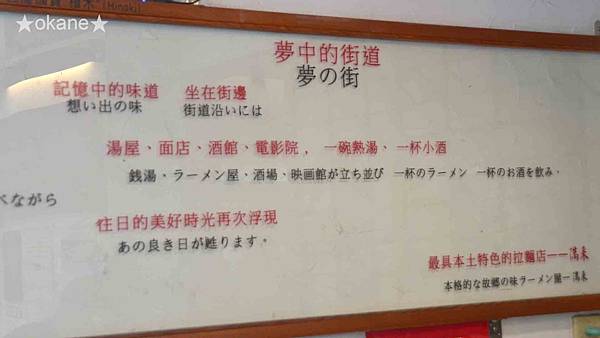 ★okane★
(Hinoki)
夢中的街道
夢の街
記憶中的味道 坐在街邊
想い出の味 街道沿いには
湯屋、面店、酒館、電影院, 一碗熱湯、一杯小酒
銭湯、ラーメン屋、酒場、映画館が立ち並び 一杯のラーメン 一杯のお酒を飲み.
べながら
往日的美好時光再次浮現
あの良き日が甦ります。
最具本土特色的拉麵店一一滿来
本格的な故郷の味ラーメン屋ー滿来